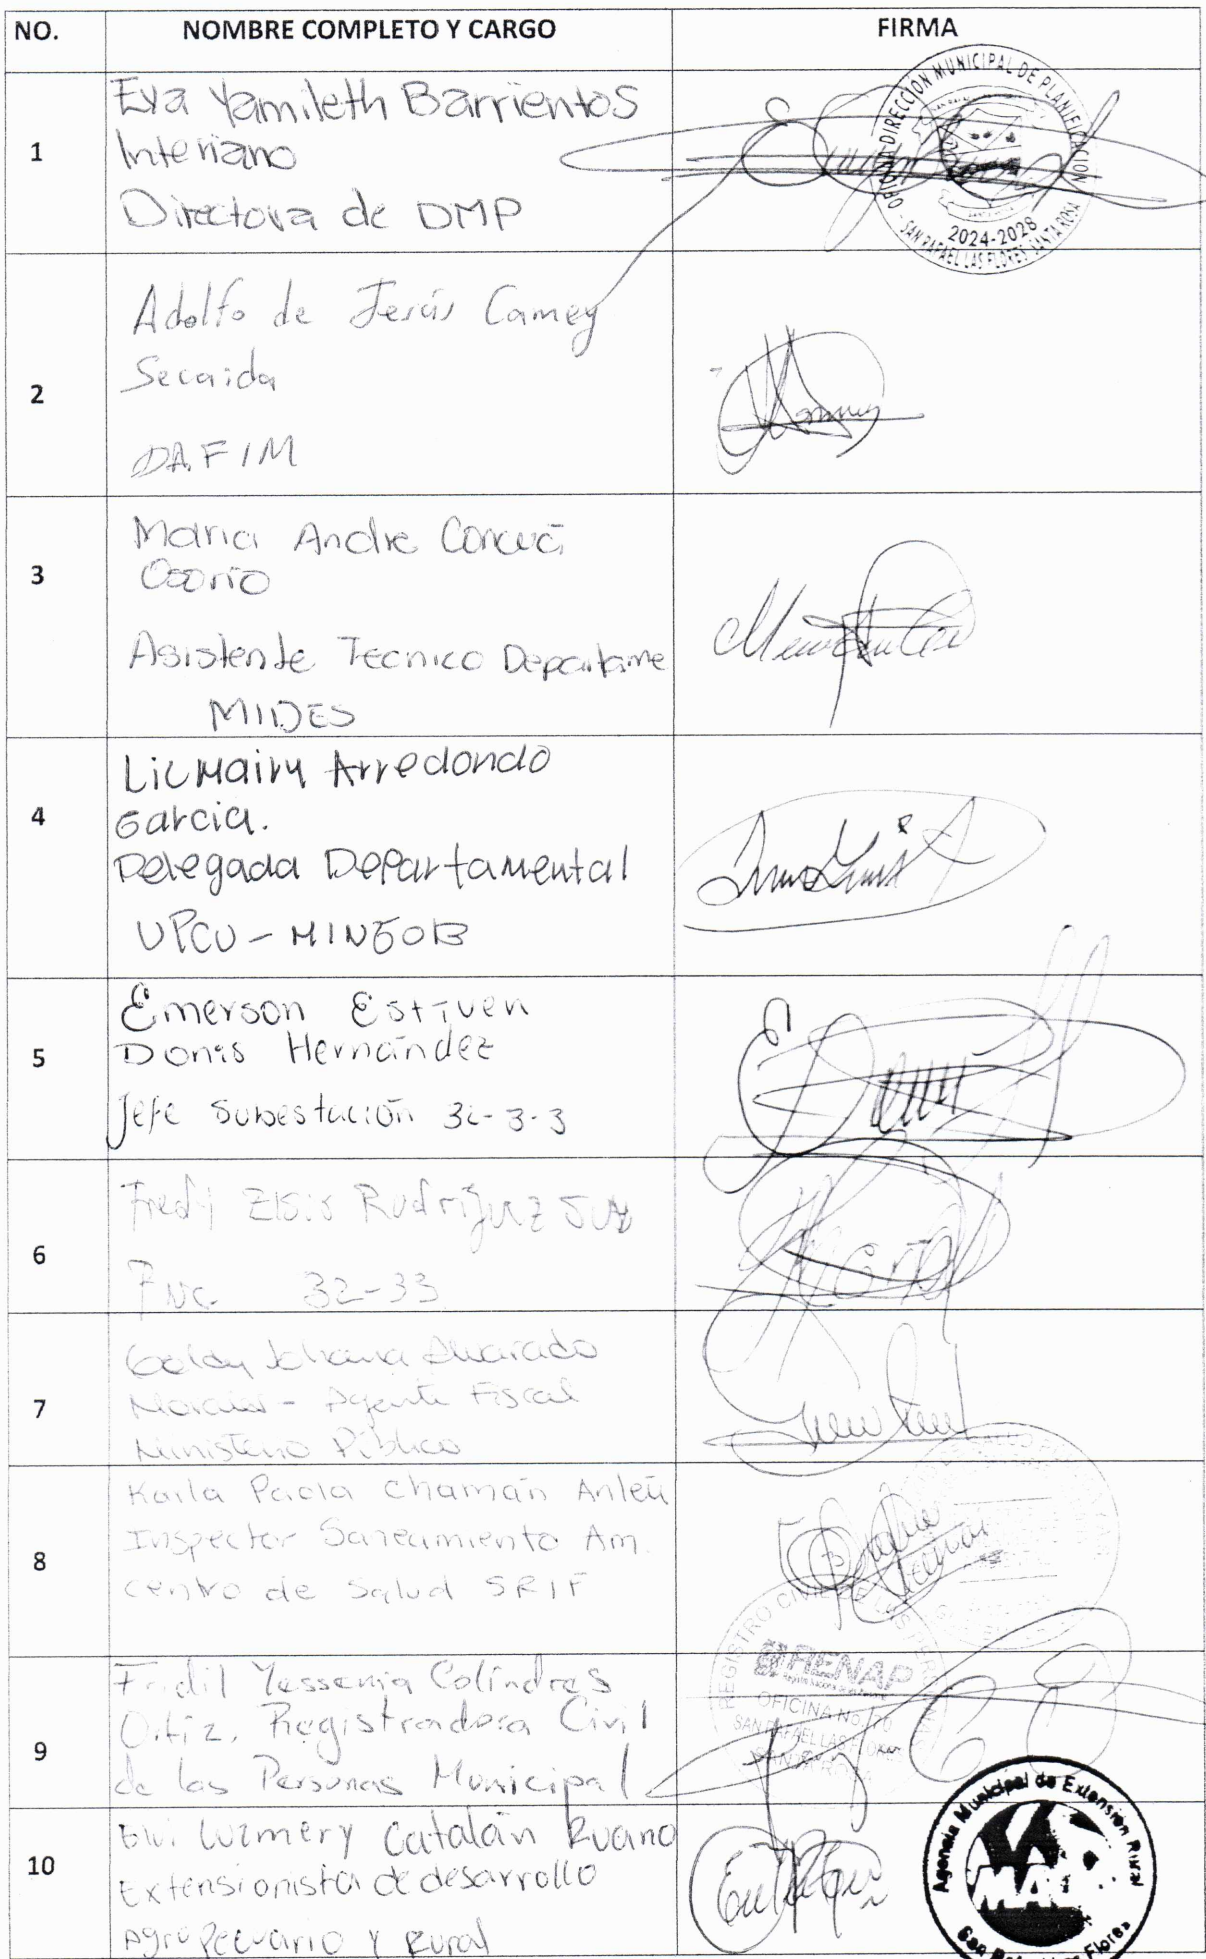 NO. NOMBRE COMPLETO Y CARGO FIRMA
1
Eva Yamileth Barrientos
Interiano
Directora de DMP
OFICINA DIRECCIÓN MUNICIPAL DE PLANIFICACIÓN
2024-2028
SAN RAFAEL LAS FLORES, SANTA ROSA
2
Adolfo de Jesús Camey
Secaida
DAFIM
3
Maria Andre
Osorio
Asistente Tecnico Departame
MIDES
4
Arredondo
Garcia.
Delegada Departamental
UPCV - MINGOB
5
Emerson Estiven
Donis Hernández
Jefe Subestación 32-3-3
6
Fredy Rodríguez
32-33
7
Johana Alvarado
Agente Fiscal
Ministerio Público
8
Karla Paola Chamán Anleú
Inspector Saneamiento Am.
centro de Salud
9
Yessenia Colindres
Registradora Civil
de las Personas Municipal
REGISTRO CIVIL DE LAS PERSONAS
RENAP
OFICINA No.
SAN RAFAEL LAS FLORES
10
Luzmery Catalán Ruano
Extensionista de desarrollo
Agropecuario y Rural
Agencia Municipal de Extensión Rural
San Rafael Las Flores